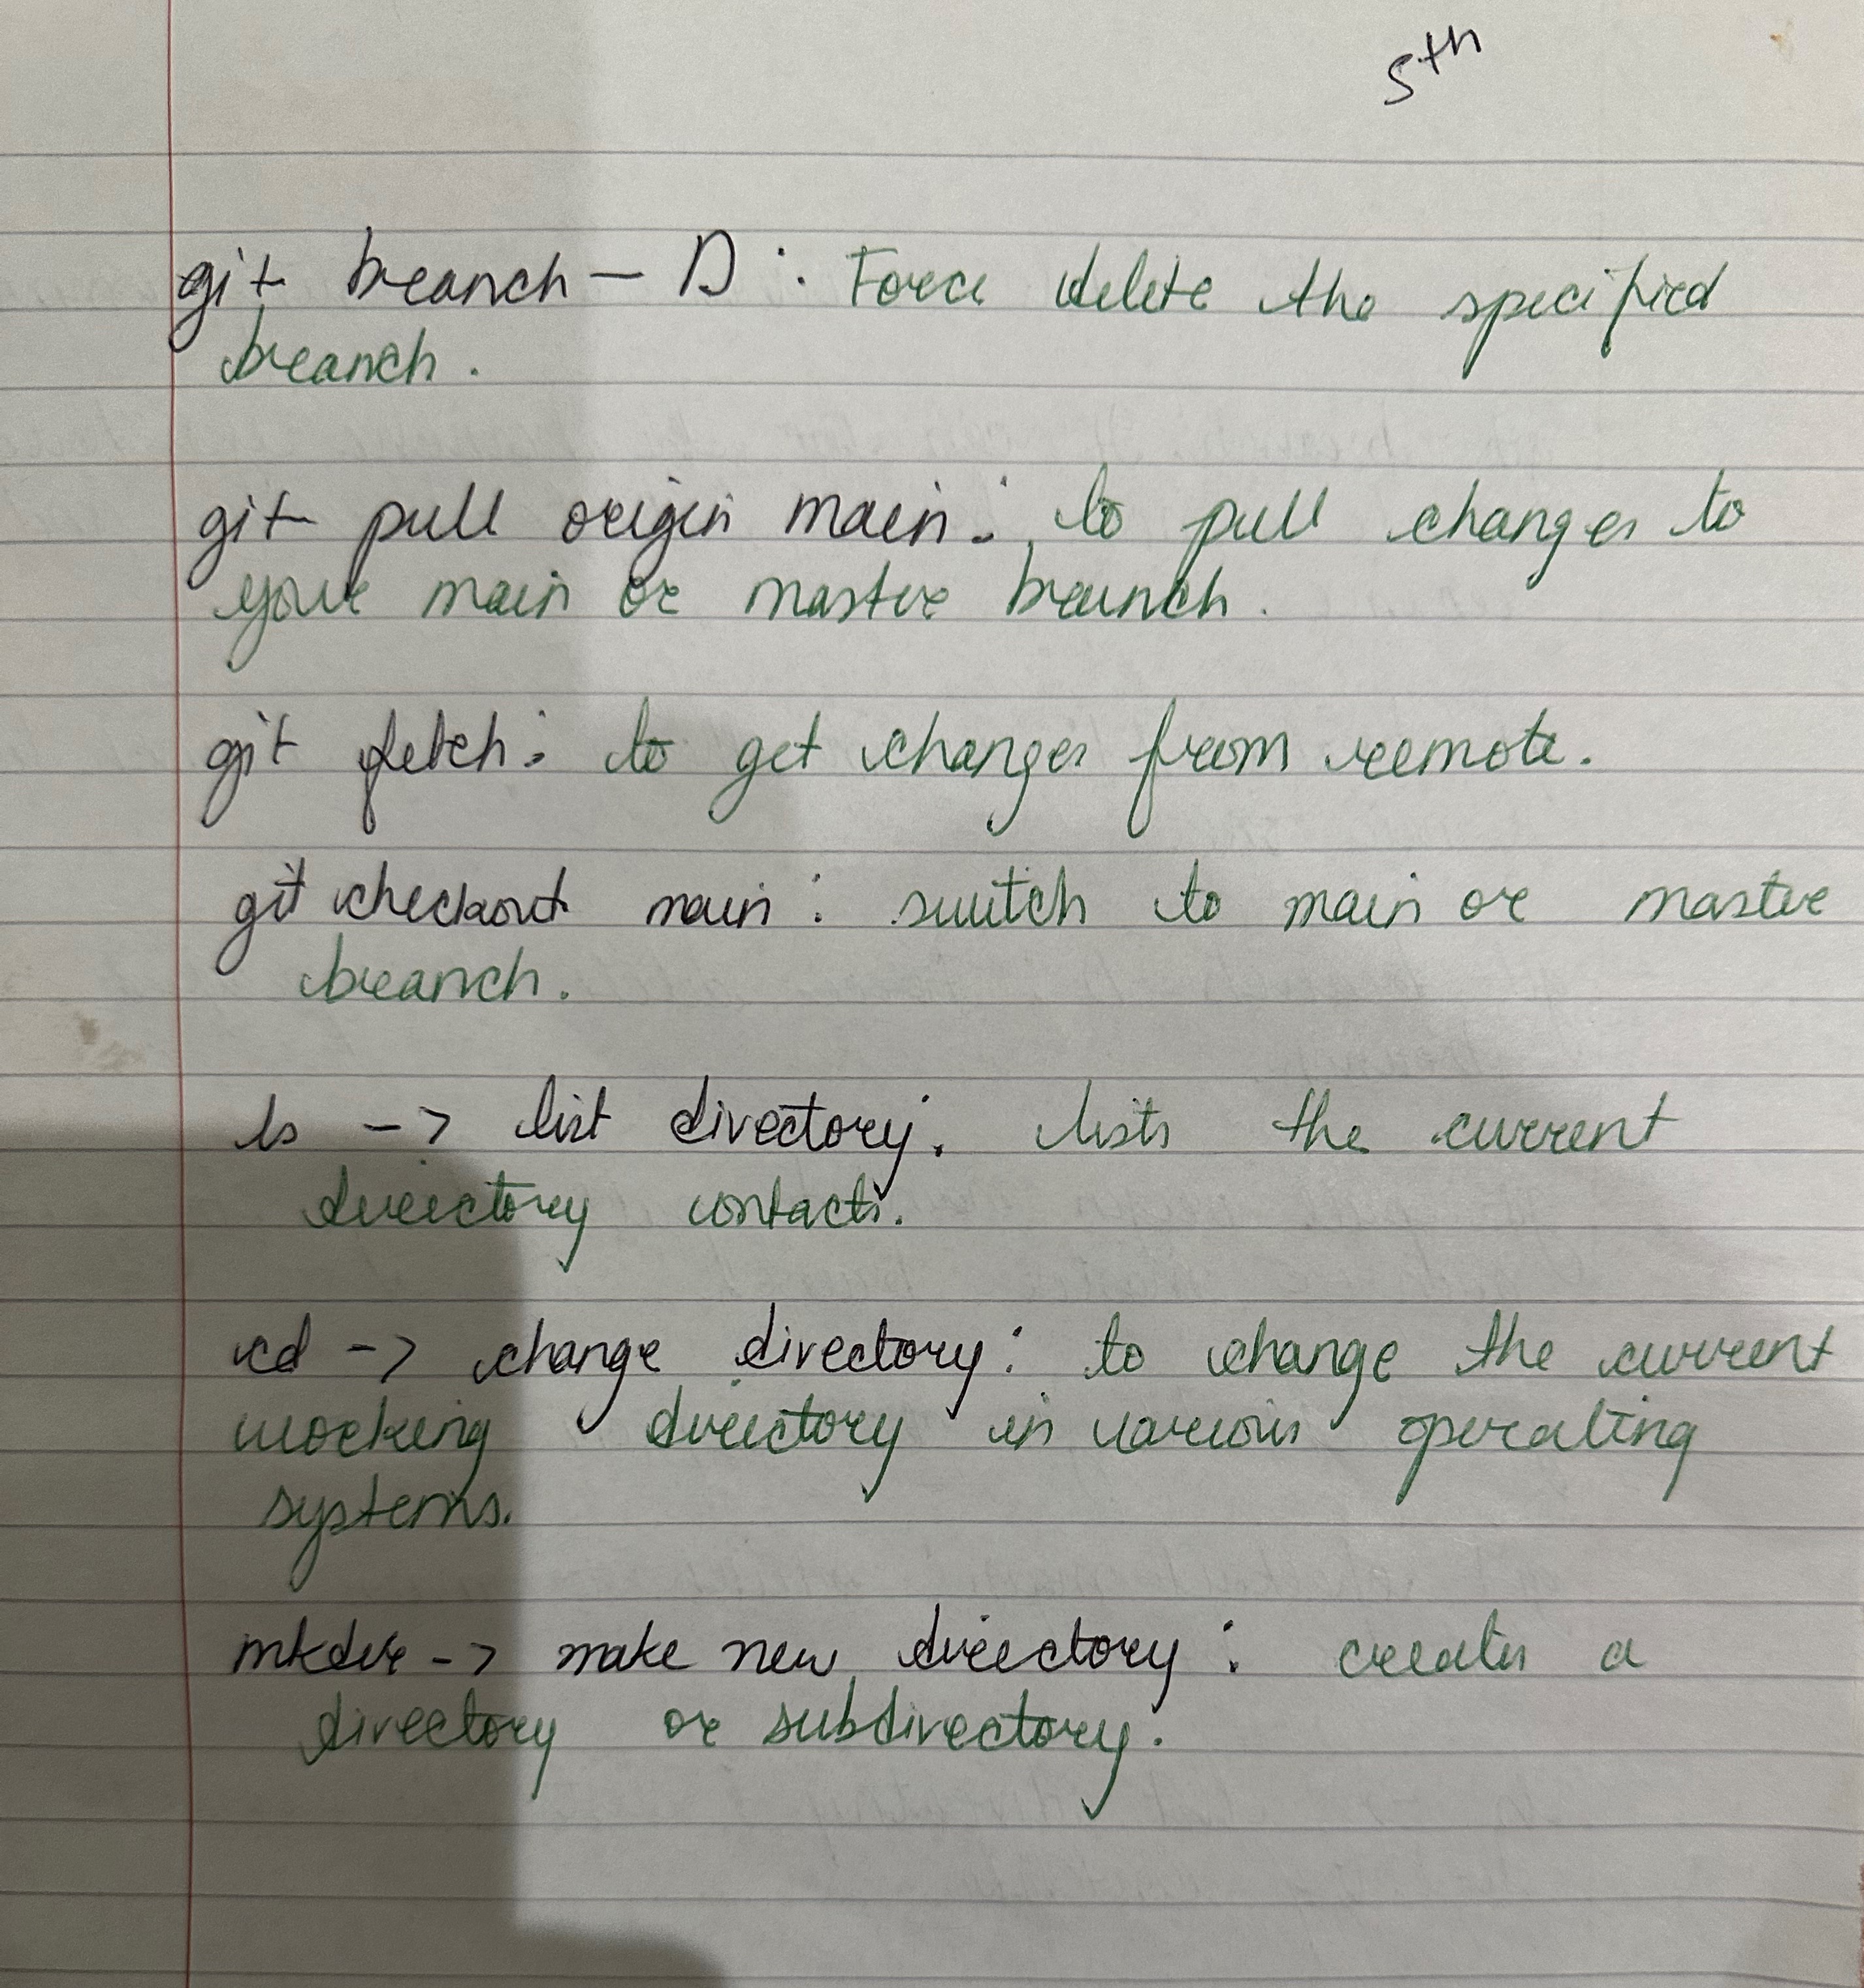 5th
git branch - D : Force delete the specified
branch.
git pull origin main : to pull changes to
your main or master branch.
git fetch : to get changes from remote.
git checkout main : switch to main or master
branch.
ls -> list directory : lists the current
directory contacts.
cd -> change directory : to change the current
working directory in various operating
systems.
mkdir -> make new directory : creates a
directory or subdirectory.